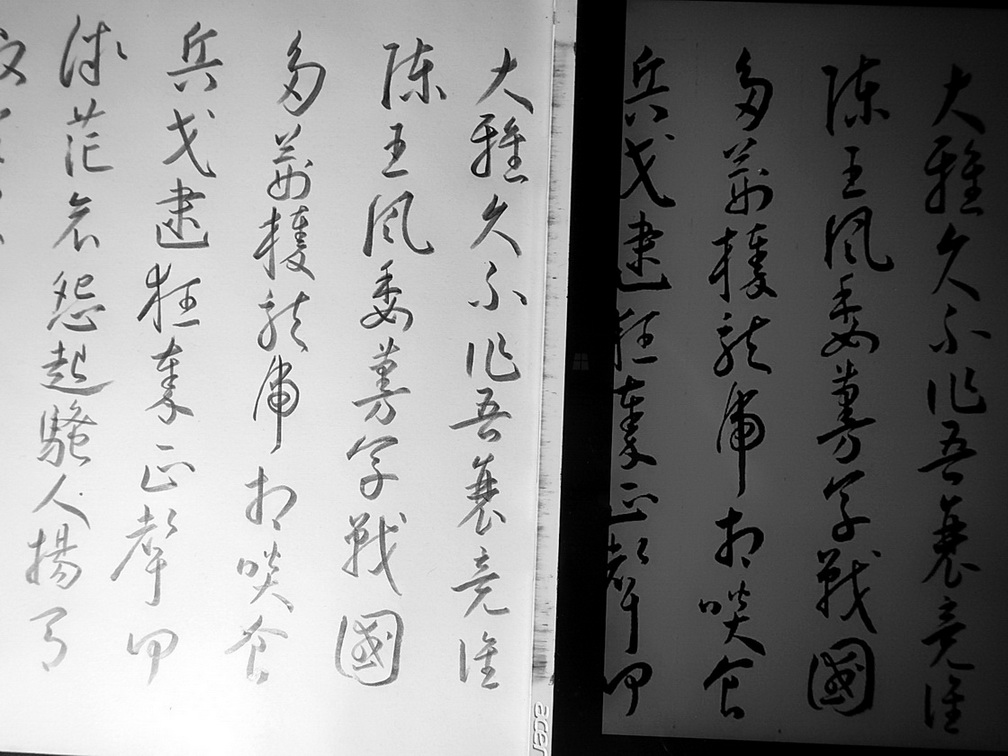 大雅久不作吾衰竟誰
陳王風委蔓草戰國
多荊榛龍虎相啖食
兵戈逮狂秦正聲何
acer
大雅久不作吾衰竟誰
陳王風委蔓草戰國
多荊榛龍虎相啖食
兵戈逮狂秦正聲何
微茫哀怨起騷人揚馬